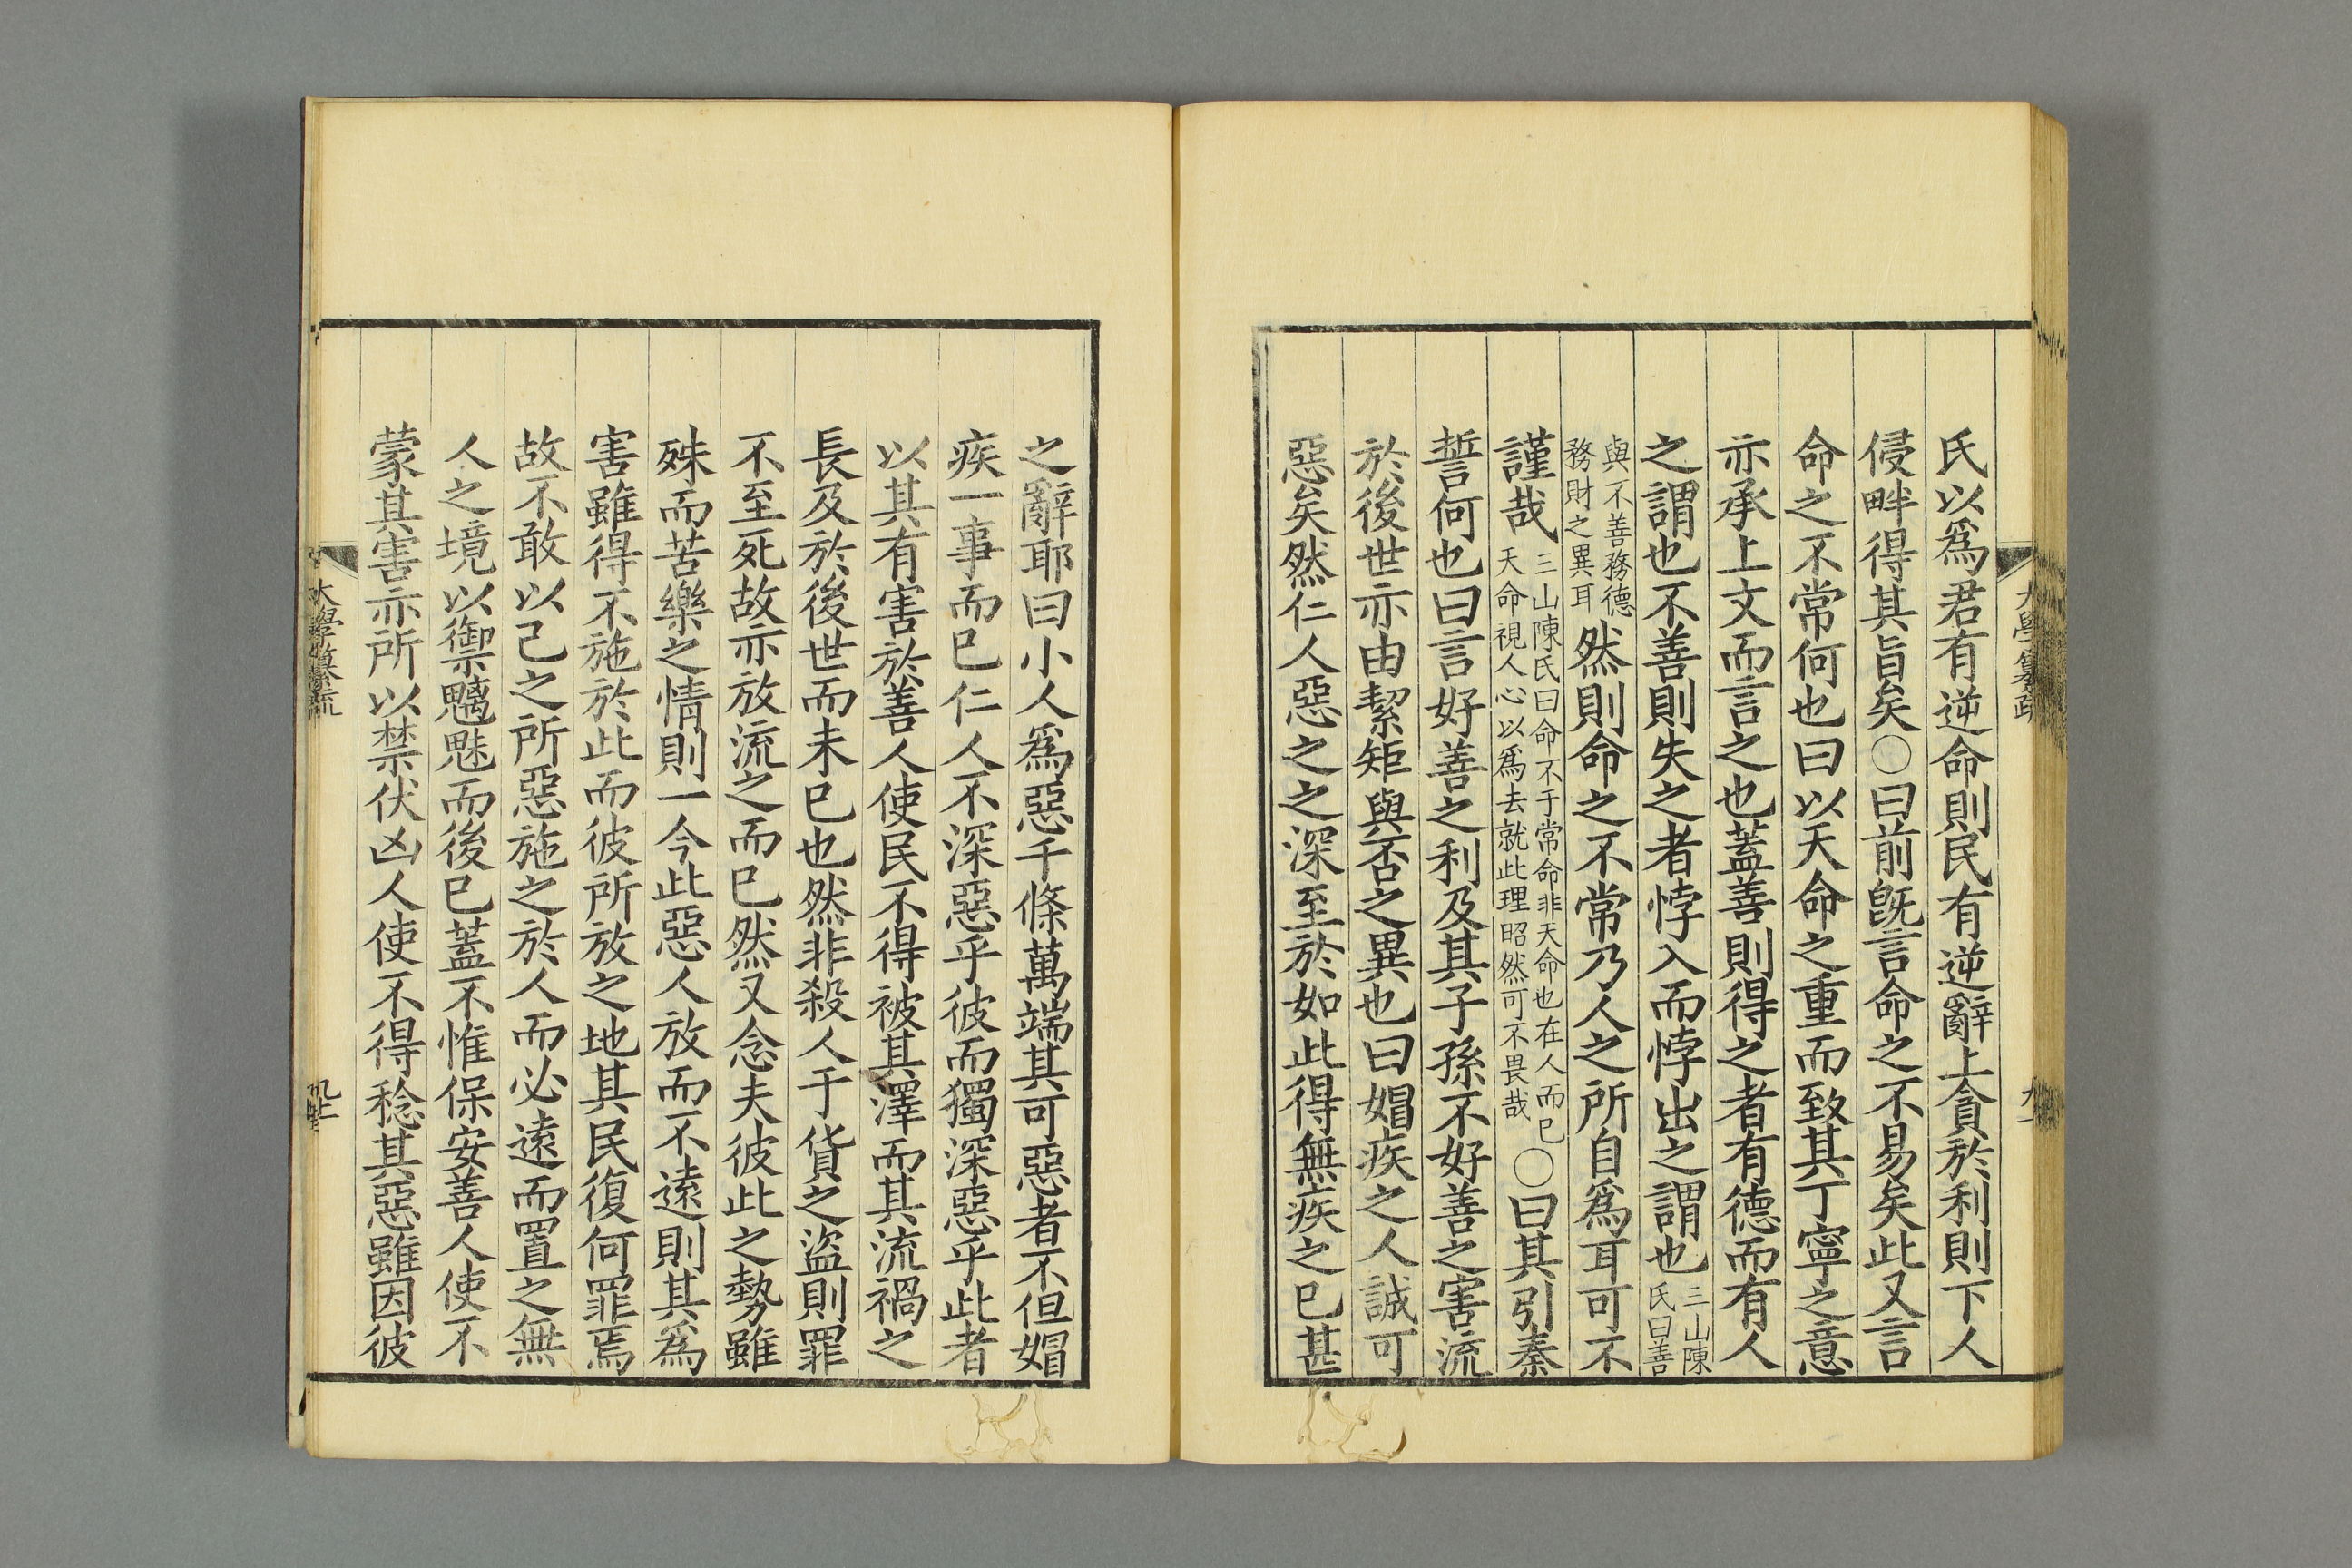 氏以爲君有逆命則民有逆辭上貪於利則下人
侵畔得其旨矣○曰前旣言命之不易矣此又言
命之不常何也曰以天命之重而致其丁寧之意
亦承上文而言之也蓋善則得之者有德而有人
之謂也不善則失之者悖入而悖出之謂也三山陳
氏曰善
與不善務德
務財之異耳然則命之不常乃人之所自爲耳可不
謹哉三山陳氏曰命不于常命非天命也在人而已
天命視人心以爲去就此理昭然可不畏哉○曰其引秦
誓何也曰言好善之利及其子孫不好善之害流
於後世亦由絜矩與否之異也曰媢疾之人誠可
惡矣然仁人惡之之深至於如此得無疾之已甚
之辭耶曰小人爲惡千條萬端其可惡者不但媢
疾一事而已仁人不深惡乎彼而獨深惡乎此者
以其有害於善人使民不得被其澤而其流禍之
長及於後世而未已也然非殺人于貨之盜則罪
不至死故亦放流之而已然又念夫彼此之勢雖
殊而苦樂之情則一今此惡人放而不遠則其爲
害雖得不施於此而彼所放之地其民復何罪焉
故不敢以己之所惡施之於人而必遠而置之無
人之境以禦魑魅而後已蓋不惟保安善人使不
蒙其害亦所以禁伏凶人使不得稔其惡雖因彼
大學纂疏